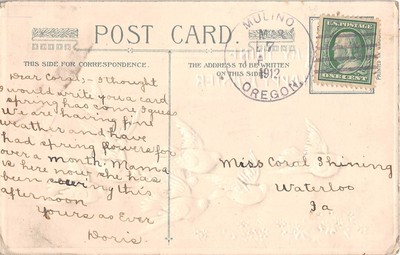 POST CARD.
THIS SIDE FOR CORRESPONDENCE.
THE ADDRESS TO BE WRITTEN
ON THIS SIDE
MULINO
1912
OREGON.
U.S. POSTAGE
ONE CENT
Dear Coral:- I thought
I would write you a card
spring has come I guess
We are having fine
weather and have
had spring flowers for
over a month. Mama
is here now she has
been sewing this
afternoon
Yours as Ever
Doris.
Miss Coral Shining
Waterloo
Ia